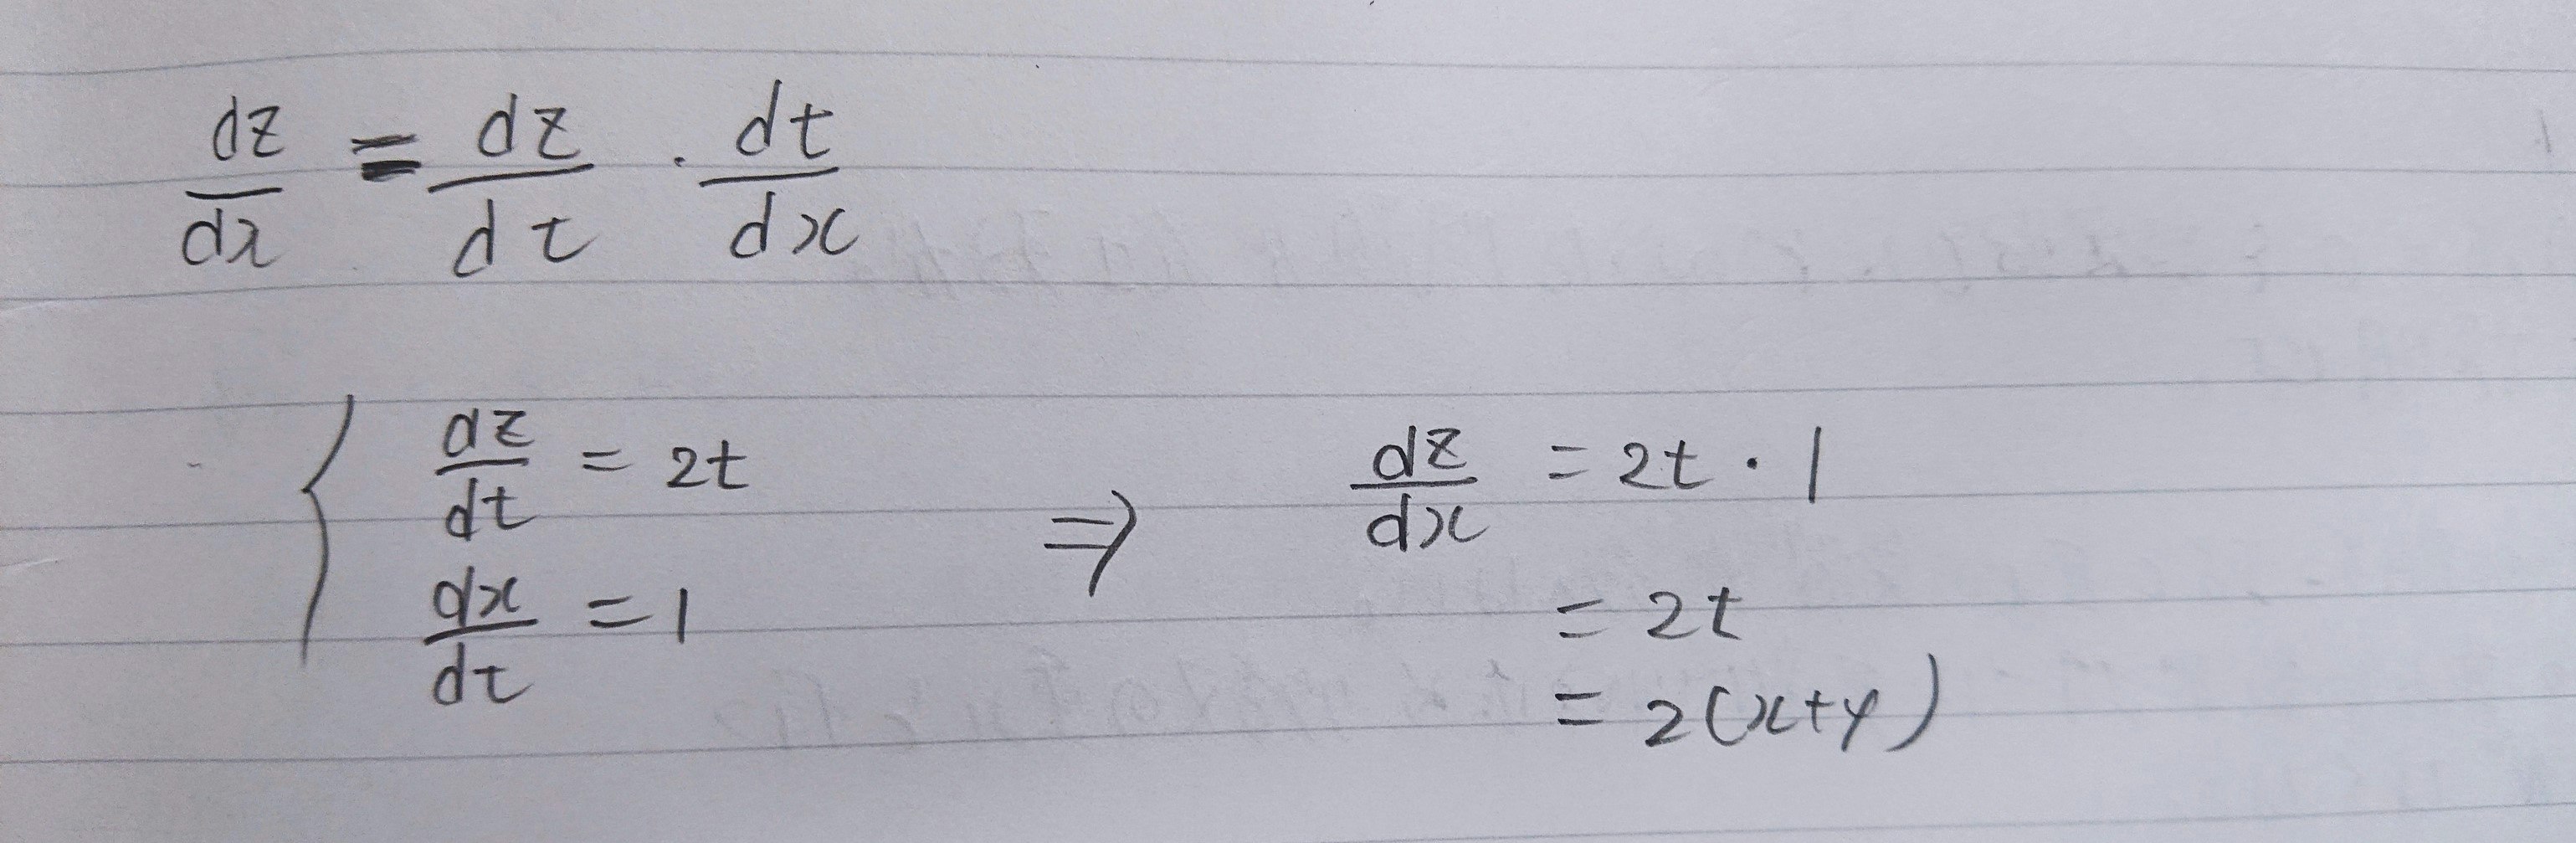 dz/dx = dz/dt · dt/dx
{ dz/dt = 2t
dx/dt = 1
⇒ dz/dx = 2t · 1
= 2t
= 2(x+y)